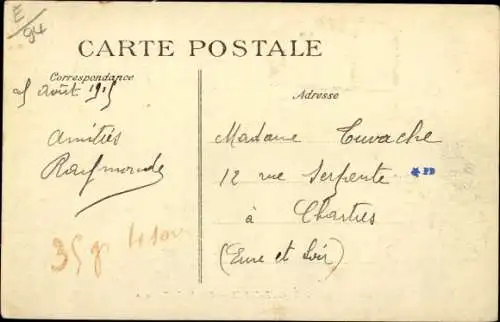 E/94
CARTE POSTALE
Correspondance
Adresse
août 1915
Amitiés
Raymonde
Madame Tuvache
12 rue Serpente
à Chartres
(Eure et Loir)
35 gr